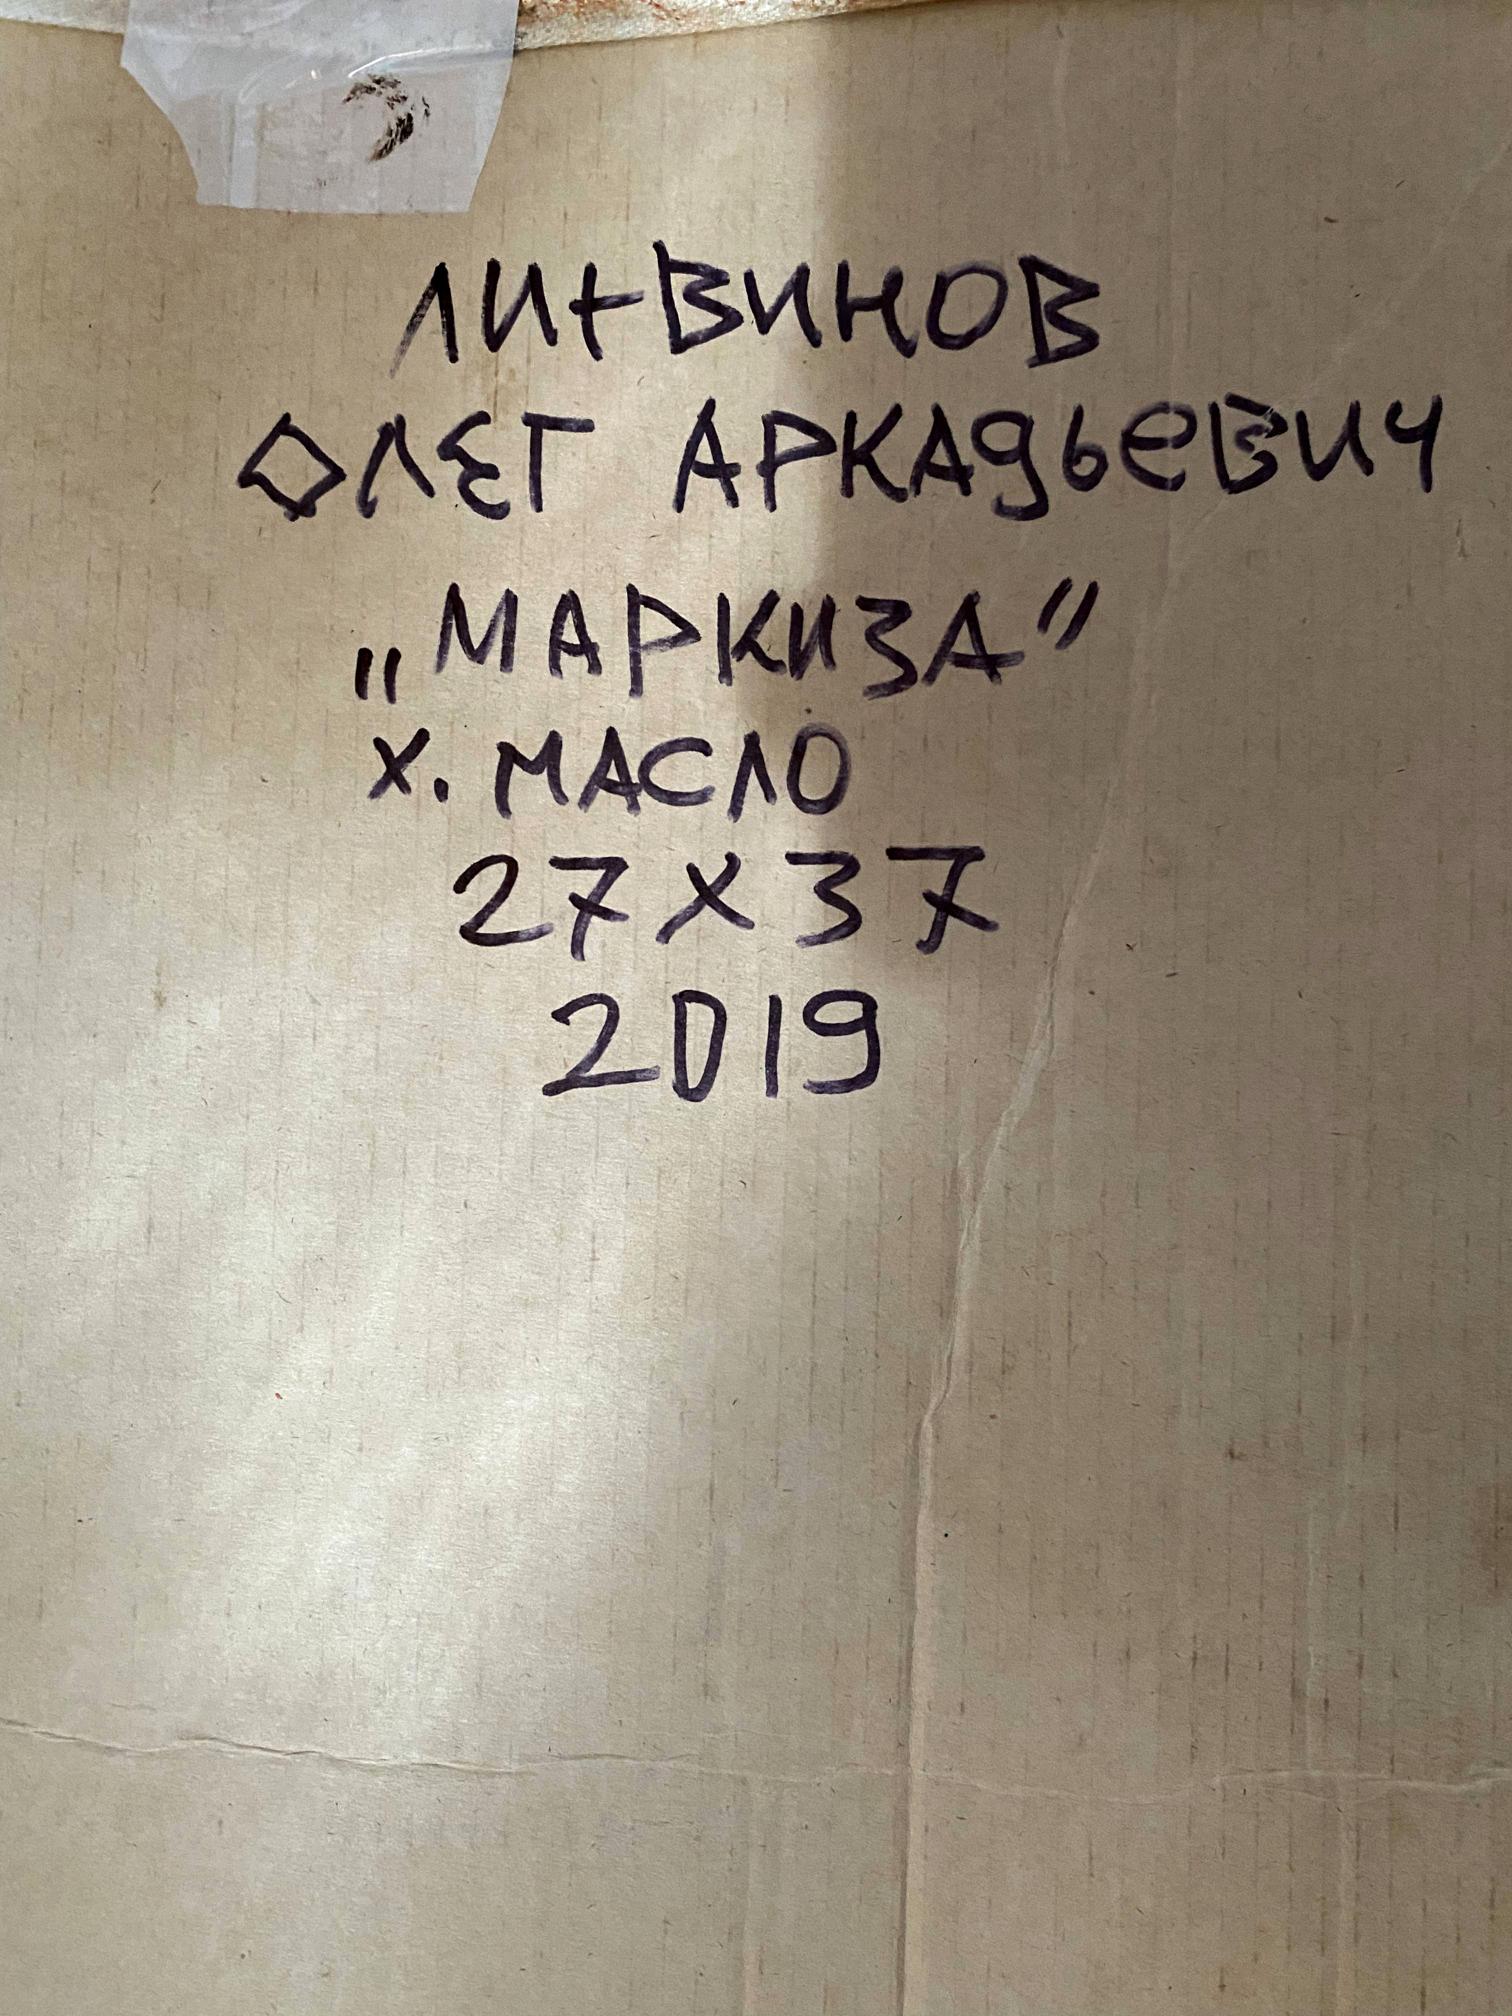 ЛИТВИНОВ
ОЛЕГ АРКАДЬЕВИЧ
„МАРКИЗА”
Х. МАСЛО
27х37
2019